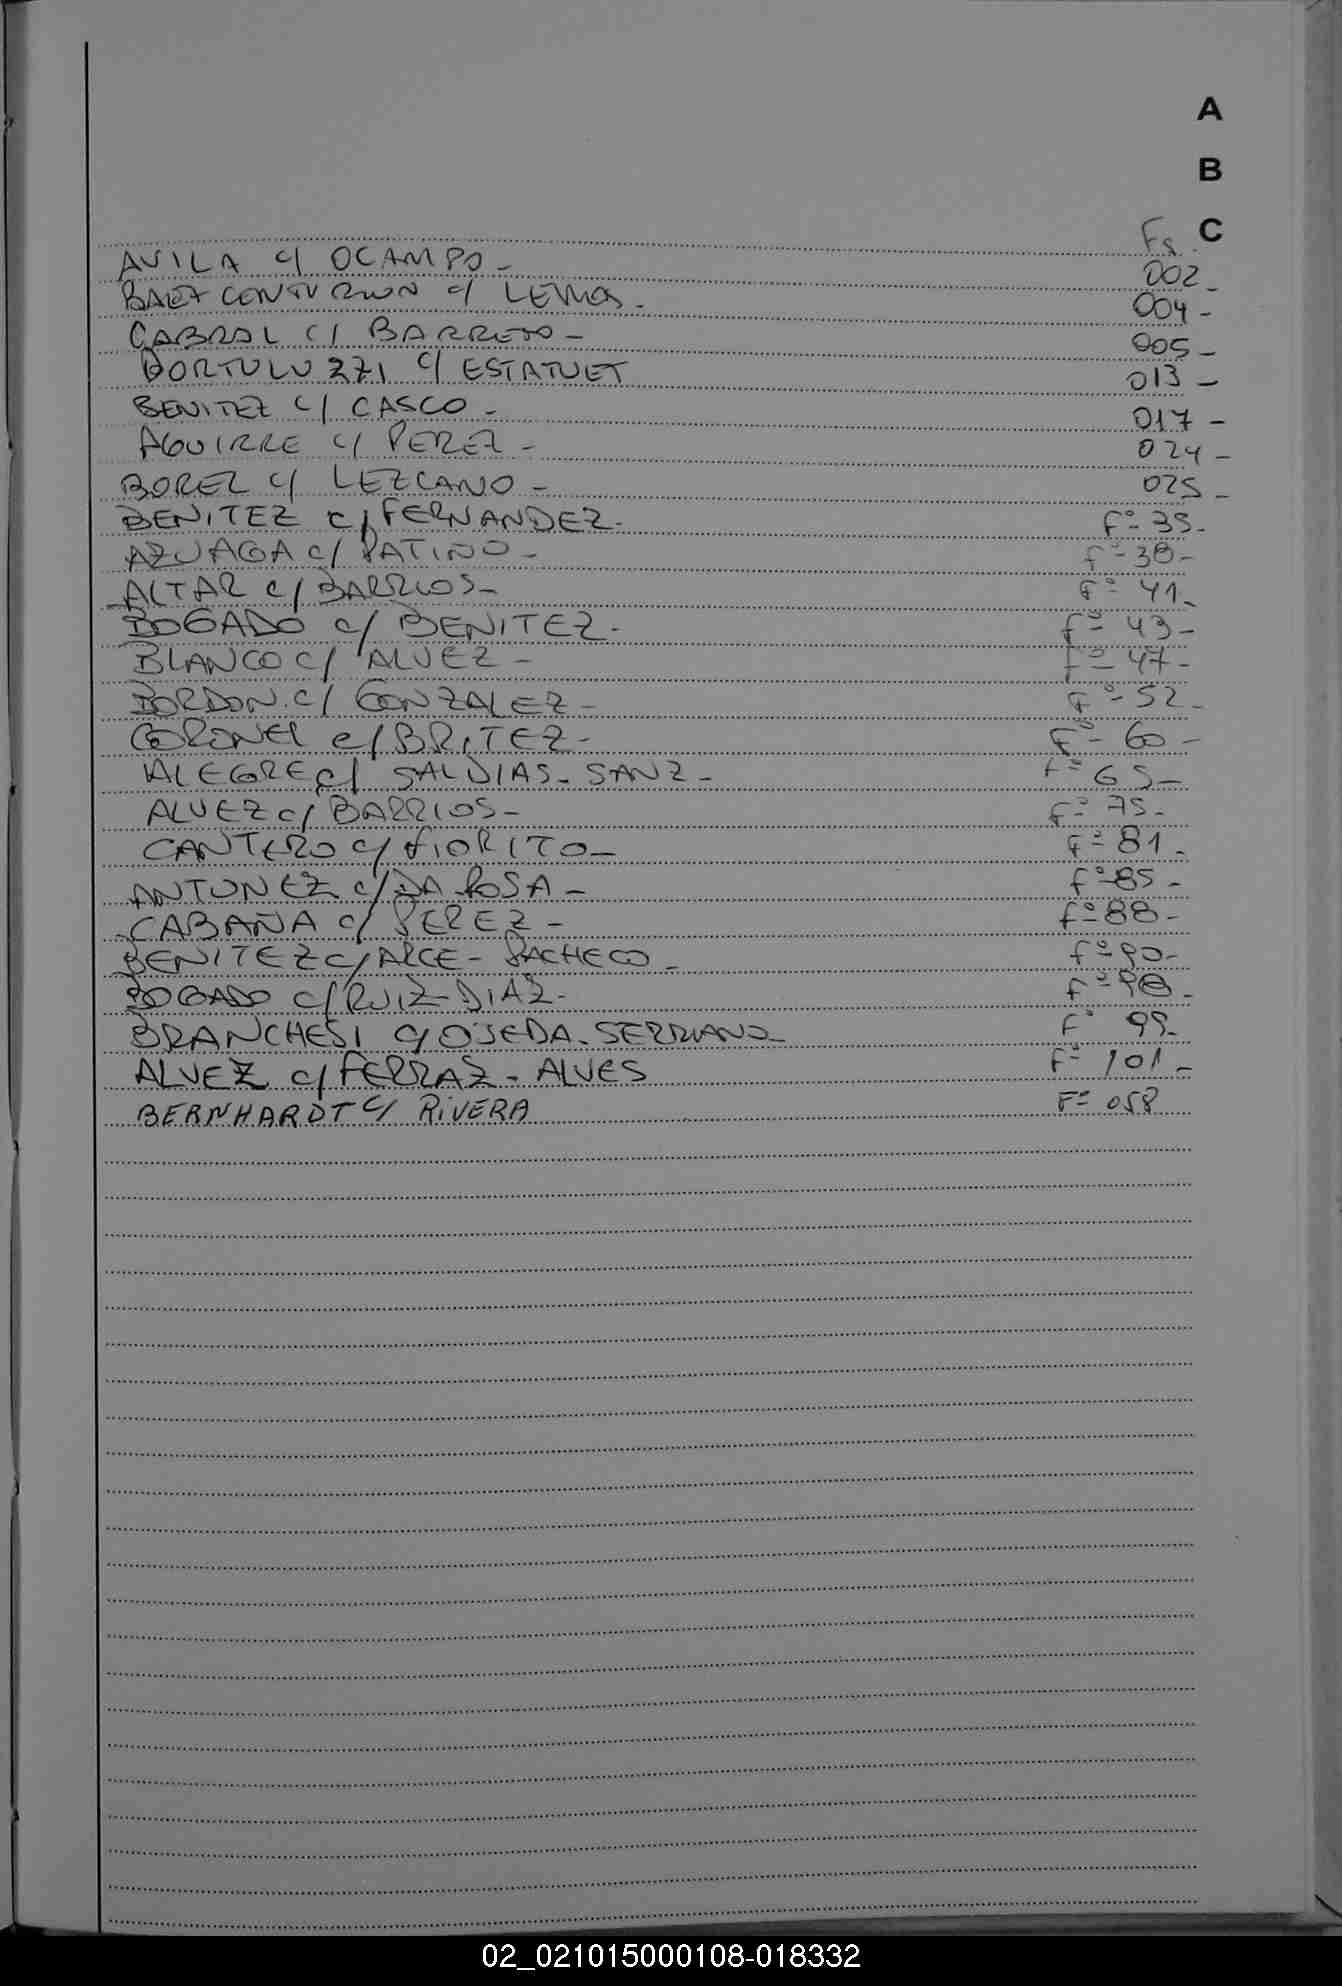 A
B
C
Fs.
AVILA c/ OCAMPO - 002 -
BAEZ CENTURION c/ LEMOS. 004 -
CABRAL c/ BARRETO - 005 -
BORTULUZZI c/ ESTATUET 013 -
BENITEZ c/ CASCO - 017 -
AGUIRRE c/ PEREZ - 024 -
BOREZ c/ LEZCANO - 025 -
BENITEZ c/ FERNANDEZ. Fº 35.
AZUAGA c/ PATIÑO - fº 38 -
ALTAR c/ BARRIOS - fº 41.
BOGADO c/ BENITEZ. fº 43 -
BLANCO c/ ALVEZ - fº 47 -
BORDON. c/ GONZALEZ - fº 52 -
CORONEL c/ BRITEZ - fº 60 -
ALEGRE c/ SALDIAS - SANZ - fº 65 -
ALVEZ c/ BARRIOS - fº 75 -
CANTERO c/ FIORITO - fº 81 -
ANTUNEZ c/ DA ROSA - fº 85 -
CABAÑA c/ PEREZ - fº 88 -
BENITEZ c/ ARCE - PACHECO - fº 90 -
BOGADO c/ RUIZ DIAZ. fº 98 -
BRANCHESI c/ OJEDA - SERRANO - Fº 99.
ALVEZ c/ FERRAZ - ALVES Fº 101 -
BERNHARDT c/ RIVERA Fº 058
02_021015000108-018332